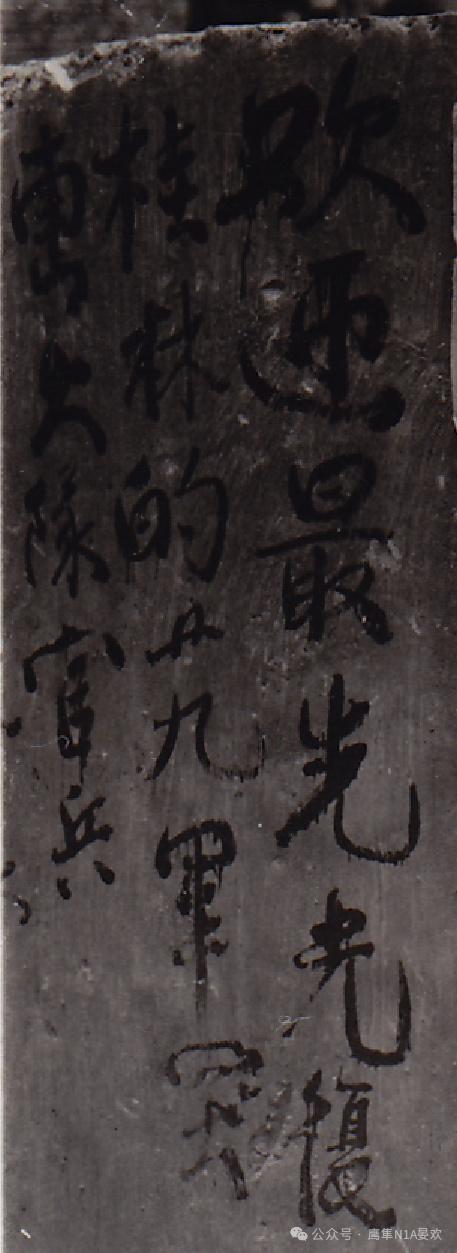 欢迎最先光復
桂林的廿九軍突
擊大隊官兵
公众号 · 鹰隼N1A晏欢